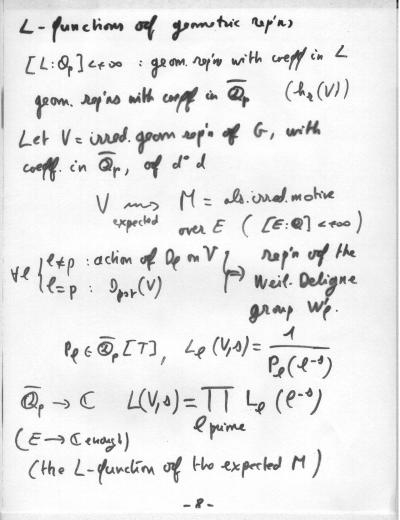 L-functions of geometric rep'ns
[L:Q_p] < +∞ : geom. rep'ns with coeff in L
geom. rep'ns with coeff in \overline{Q}_p (h_r(V))
Let V = irred. geom rep'n of G, with
coeff. in \overline{Q}_p, of d° d
V ⇝ M = abs. irred. motive
expected over E ([E:Q] < +∞)
∀ℓ { ℓ≠p : action of D_ℓ on V } ↦ rep'n of the
ℓ=p : D_pst(V) Weil-Deligne
group W'_ℓ.
P_ℓ ∈ \overline{Q}_p[T], L_ℓ(V,s) = 1 / P_ℓ(ℓ^{-s})
\overline{Q}_p → C L(V,s) = ∏ L_ℓ(ℓ^{-s})
ℓ prime
(E → C enough)
(the L-function of the expected M)
-8-